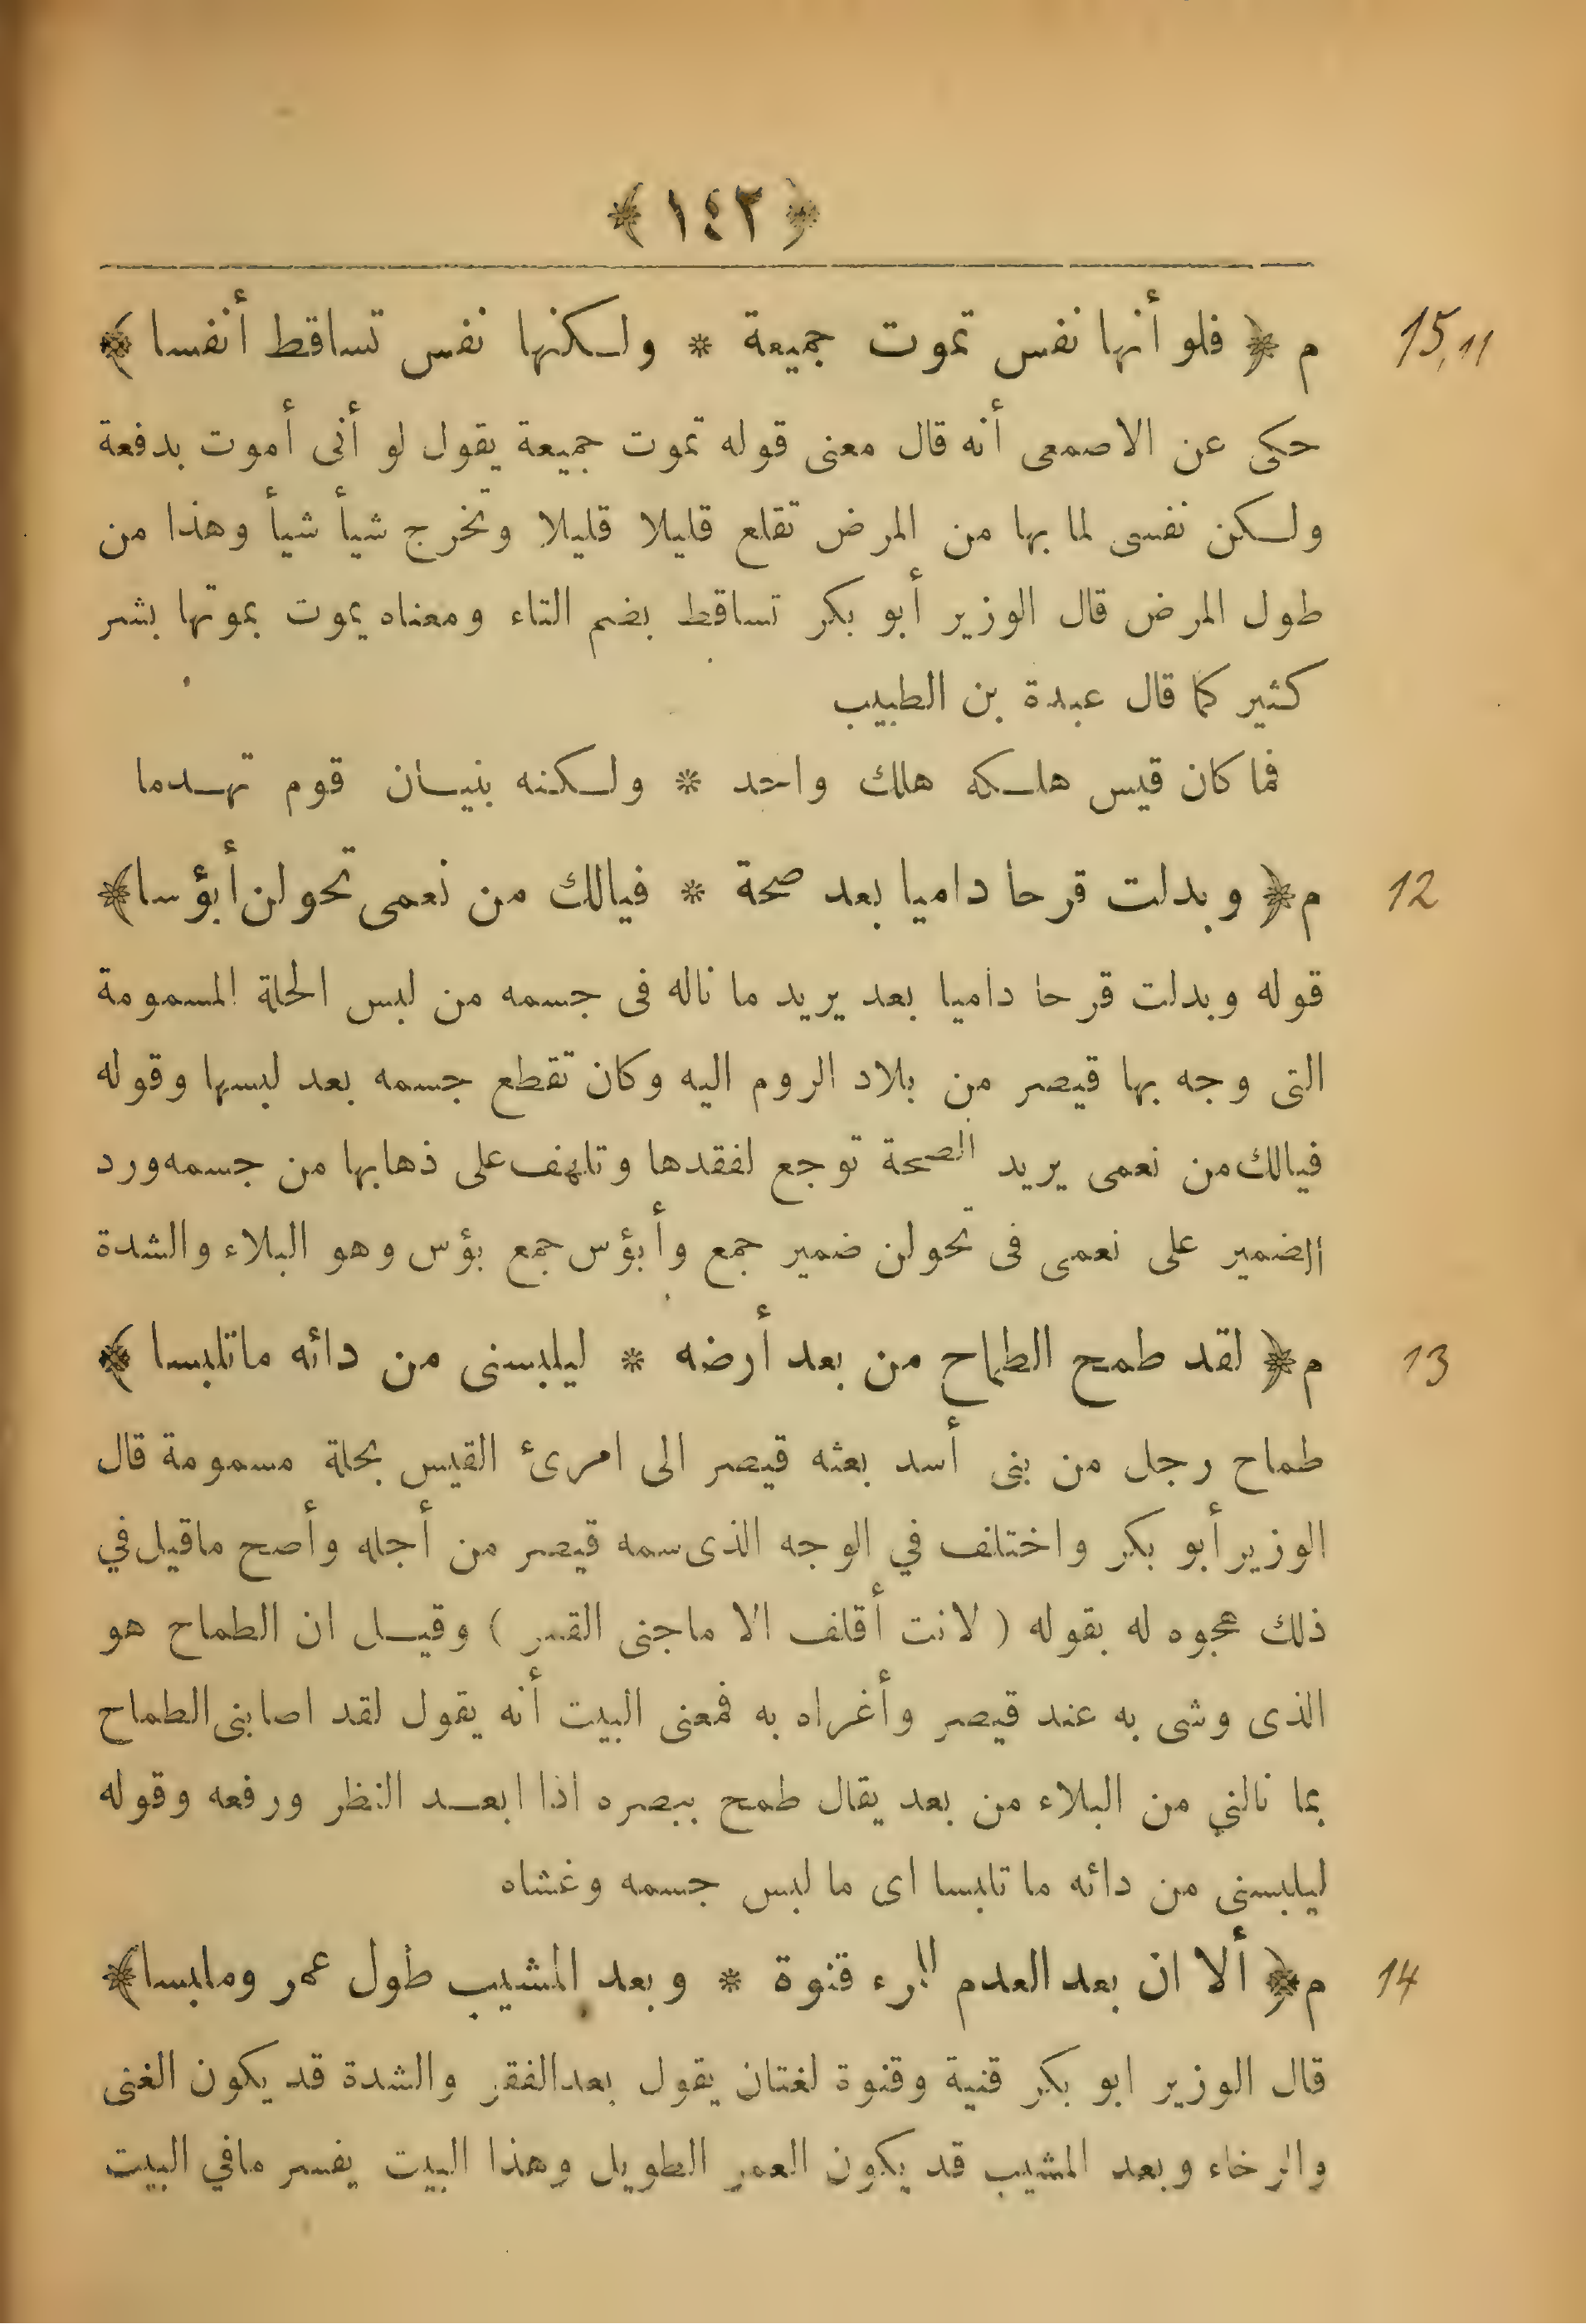 ﴿ ١٤٢ ﴾
م ﴿ فلو أنها نفس تموت جميعة * ولكنها نفس تساقط أنفسا ﴾ 15,11
حكى عن الاصمعى أنه قال معنى قوله تموت جميعة يقول لو أنى أموت بدفعة
ولكن نفسى لما بها من المرض تقلع قليلا قليلا وتخرج شيأ شيأ وهذا من
طول المرض قال الوزير أبو بكر تساقط بضم التاء ومعناه يموت بموتها بشر
كثير كما قال عبدة بن الطبيب
فما كان قيس هلكه هلك واحد * ولكنه بنيان قوم تهدما
م ﴿ وبدلت قرحا داميا بعد صحة * فيالك من نعمى تحولن أبؤسا ﴾ 12
قوله وبدلت قرحا داميا بعد يريد ما ناله فى جسمه من لبس الحلة المسمومة
التى وجه بها قيصر من بلاد الروم اليه وكان تقطع جسمه بعد لبسها وقوله
فيالك من نعمى يريد الصحة توجع لفقدها وتلهف على ذهابها من جسمه ورد
الضمير على نعمى فى تحولن ضمير جمع وأبؤس جمع بؤس وهو البلاء والشدة
م ﴿ لقد طمح الطماح من بعد أرضه * ليلبسنى من دائه ماتلبسا ﴾ 13
طماح رجل من بنى أسد بعثه قيصر الى امرئ القيس بحلة مسمومة قال
الوزير أبو بكر واختلف في الوجه الذى سمه قيصر من أجله وأصح ماقيل في
ذلك هجوه له بقوله ( لانت أقلف الا ماجنى القمر ) وقيل ان الطماح هو
الذى وشى به عند قيصر وأغراه به فمعنى البيت أنه يقول لقد اصابنى الطماح
بما نالني من البلاء من بعد يقال طمح ببصره اذا ابعد النظر ورفعه وقوله
ليلبسنى من دائه ما تلبسا اى ما لبس جسمه وغشاه
م ﴿ ألا ان بعد العدم للمرء قنوة * وبعد المشيب طول عمر وملبسا ﴾ 14
قال الوزير ابو بكر قنية وقنوة لغتان يقول بعد الفقر والشدة قد يكون الغنى
والرخاء وبعد المشيب قد يكون العمر الطويل وهذا البيت يفسر مافي البيت